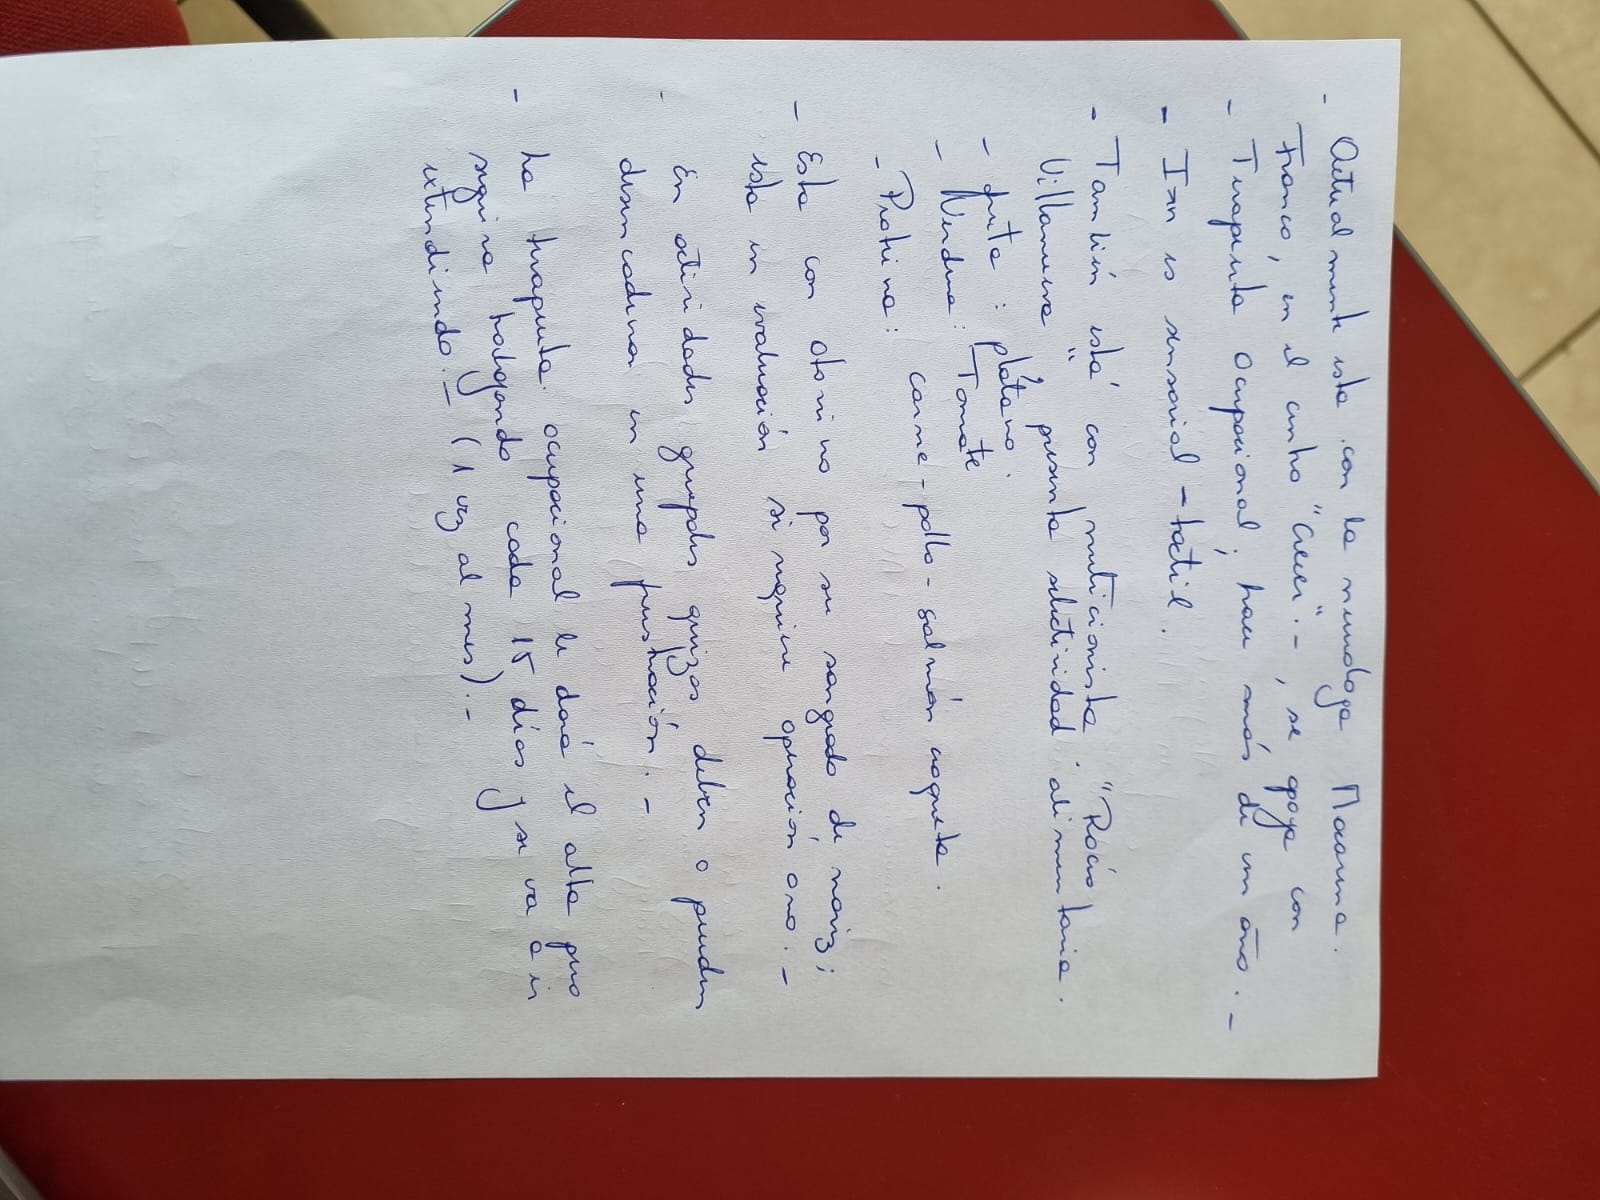 - Actualmente esta con la neurologa Macarena
Franco, en el centro "Creer".-, se apoya con
- Terapeuta Ocupacional; hace más de un año.-
- Ian es sensorial - táctil.
- También está con nutricionista. "Rocío
Villanueva" presenta selectividad alimentaria.
- fruta: plátano.
- Verdura: Tomate
- Proteina: carne - pollo - salmón croqueta.
- Esta con otorrino por su sangrado de nariz;
esta en evaluación si requiere operación o no.-
- En actividades grupales quizas deben o pueden
desencadenar en una frustración.-
- La terapeuta ocupacional le dará el alta pero
seguira trabajando cada 15 días y se va a ir
extendiendo.- (1 vez al mes).-